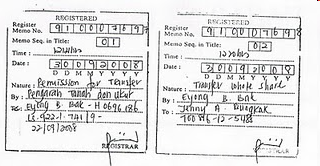 REGISTERED
Register
Memo No. 910007697
Memo Seq. in Title: 01
Time :
Date : 30092008
D D M M Y Y Y Y
Nature : Permission for Transfer
Pengarah Tanah dan Ukur
Eyong B. Bak - H 0696186
To:
22/09/2008
REGISTRAR
REGISTERED
Register
Memo No. 910007698
Memo Seq. in Title: 02
Time :
Date : 30092008
D D M M Y Y Y Y
Nature : Transfer whole share
By : Eyong B. Bak
To : Jenny A. Rungkak
REGISTRAR